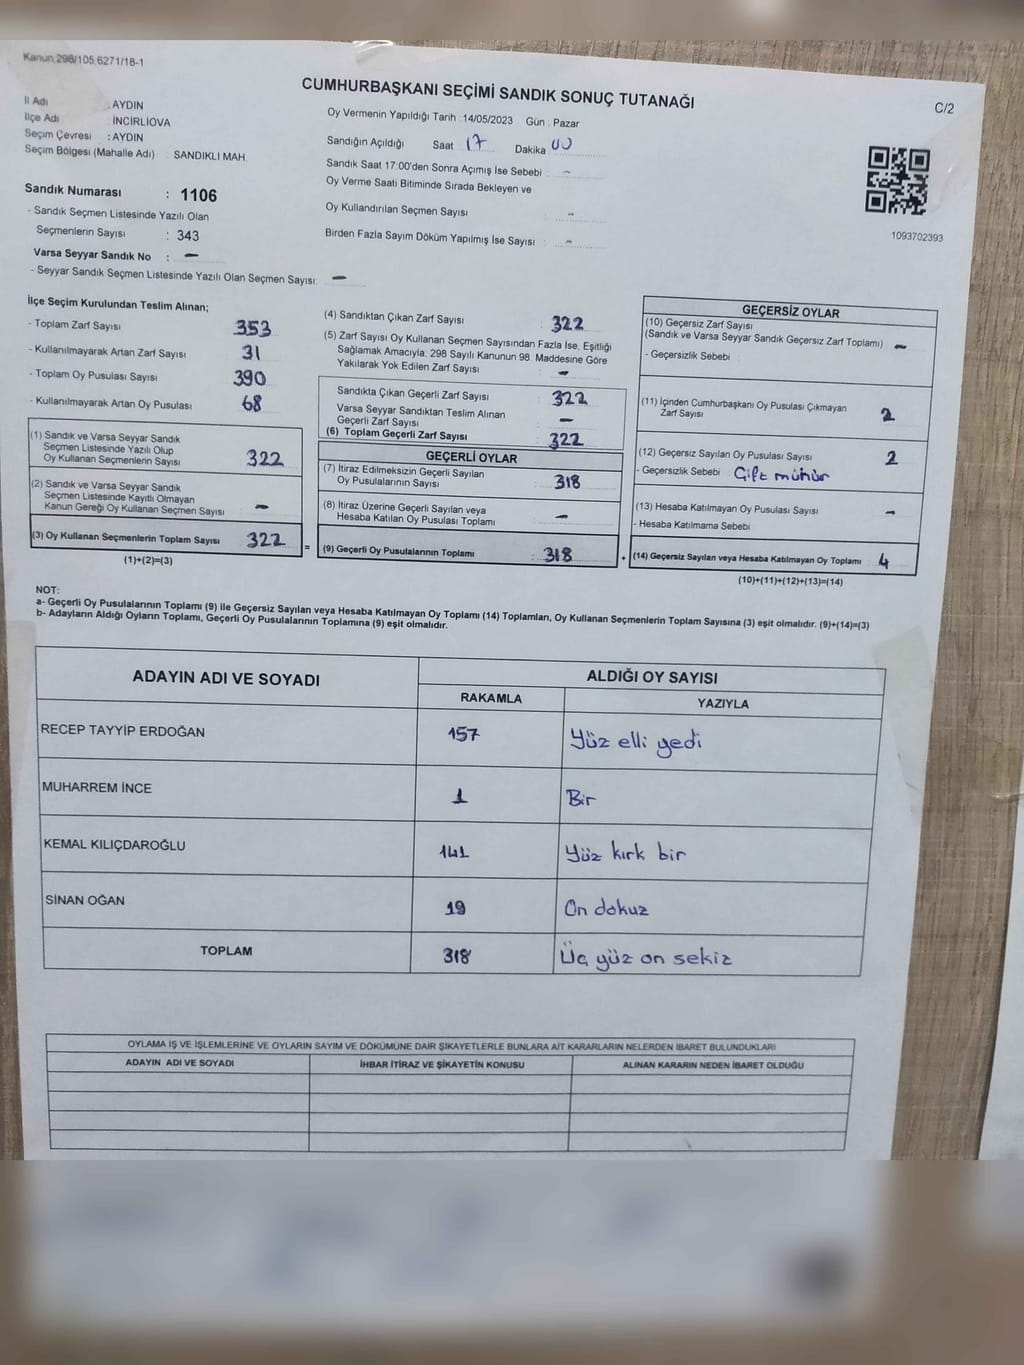 Kanun 298/105,6271/18-1
CUMHURBAŞKANI SEÇİMİ SANDIK SONUÇ TUTANAĞI
C/2
İl Adı : AYDIN
İlçe Adı : İNCİRLİOVA
Seçim Çevresi : AYDIN
Seçim Bölgesi (Mahalle Adı) : SANDIKLI MAH.
Oy Vermenin Yapıldığı Tarih : 14/05/2023 Gün : Pazar
Sandığın Açıldığı Saat 17 Dakika 00
Sandık Saat 17:00'den Sonra Açımış İse Sebebi : -
Oy Verme Saati Bitiminde Sırada Bekleyen ve
Oy Kullandırılan Seçmen Sayısı : -
Birden Fazla Sayım Döküm Yapılmış İse Sayısı : -
1093702393
Sandık Numarası : 1106
- Sandık Seçmen Listesinde Yazılı Olan
Seçmenlerin Sayısı : 343
Varsa Seyyar Sandık No : -
- Seyyar Sandık Seçmen Listesinde Yazılı Olan Seçmen Sayısı: -
İlçe Seçim Kurulundan Teslim Alınan;
- Toplam Zarf Sayısı 353
- Kullanılmayarak Artan Zarf Sayısı 31
- Toplam Oy Pusulası Sayısı 390
- Kullanılmayarak Artan Oy Pusulası 68
(1) Sandık ve Varsa Seyyar Sandık
Seçmen Listesinde Yazılı Olup
Oy Kullanan Seçmenlerin Sayısı 322
(2) Sandık ve Varsa Seyyar Sandık
Seçmen Listesinde Kayıtlı Olmayan
Kanun Gereği Oy Kullanan Seçmen Sayısı : -
(3) Oy Kullanan Seçmenlerin Toplam Sayısı 322
(1)+(2)=(3)
(4) Sandıktan Çıkan Zarf Sayısı : 322
(5) Zarf Sayısı Oy Kullanan Seçmen Sayısından Fazla İse, Eşitliği
Sağlamak Amacıyla; 298 Sayılı Kanunun 98. Maddesine Göre
Yakılarak Yok Edilen Zarf Sayısı : -
Sandıkta Çıkan Geçerli Zarf Sayısı : 322
Varsa Seyyar Sandıktan Teslim Alınan
Geçerli Zarf Sayısı : -
(6) Toplam Geçerli Zarf Sayısı : 322
GEÇERLİ OYLAR
(7) İtiraz Edilmeksizin Geçerli Sayılan
Oy Pusulalarının Sayısı : 318
(8) İtiraz Üzerine Geçerli Sayılan veya
Hesaba Katılan Oy Pusulası Toplamı : -
= (9) Geçerli Oy Pusulalarının Toplamı : 318
GEÇERSİZ OYLAR
(10) Geçersiz Zarf Sayısı
(Sandık ve Varsa Seyyar Sandık Geçersiz Zarf Toplamı) -
- Geçersizlik Sebebi :
(11) İçinden Cumhurbaşkanı Oy Pusulası Çıkmayan
Zarf Sayısı 2
(12) Geçersiz Sayılan Oy Pusulası Sayısı 2
- Geçersizlik Sebebi Çift mühür
(13) Hesaba Katılmayan Oy Pusulası Sayısı -
- Hesaba Katılmama Sebebi
+ (14) Geçersiz Sayılan veya Hesaba Katılmayan Oy Toplamı : 4
(10)+(11)+(12)+(13)=(14)
NOT:
a- Geçerli Oy Pusulalarının Toplamı (9) ile Geçersiz Sayılan veya Hesaba Katılmayan Oy Toplamı (14) Toplamları, Oy Kullanan Seçmenlerin Toplam Sayısına (3) eşit olmalıdır. (9)+(14)=(3)
b- Adayların Aldığı Oyların Toplamı, Geçerli Oy Pusulalarının Toplamına (9) eşit olmalıdır.
ADAYIN ADI VE SOYADI ALDIĞI OY SAYISI
RAKAMLA YAZIYLA
RECEP TAYYİP ERDOĞAN 157 Yüz elli yedi
MUHARREM İNCE 1 Bir
KEMAL KILIÇDAROĞLU 141 Yüz kırk bir
SİNAN OĞAN 19 On dokuz
TOPLAM 318 Üç yüz on sekiz
OYLAMA İŞ VE İŞLEMLERİNE VE OYLARIN SAYIM VE DÖKÜMÜNE DAİR ŞİKAYETLERLE BUNLARA AİT KARARLARIN NELERDEN İBARET BULUNDUKLARI
ADAYIN ADI VE SOYADI İHBAR İTİRAZ VE ŞİKAYETİN KONUSU ALINAN KARARIN NEDEN İBARET OLDUĞU